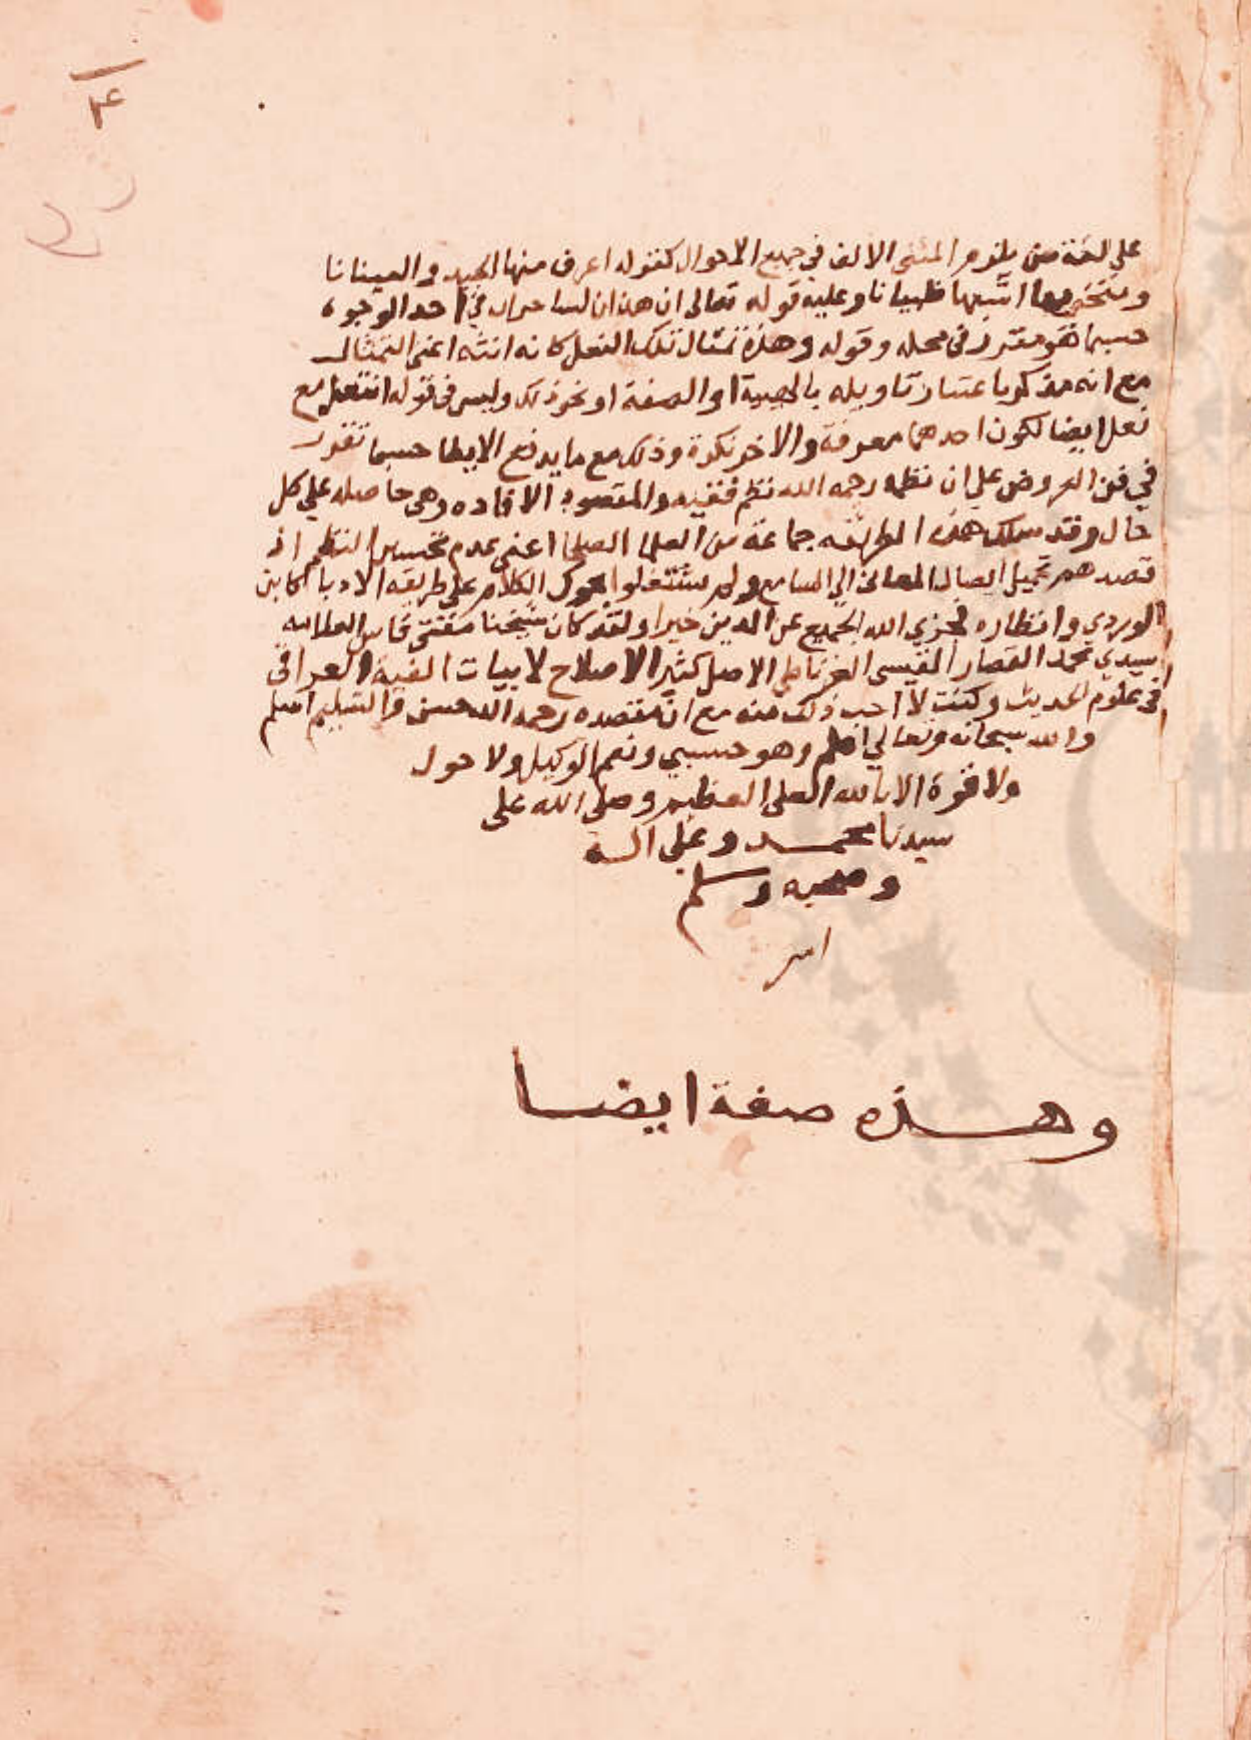 ٤
على لغة من يلزم المثنى الالف في جميع الاحوال كقوله اعرف منها الجيد والعينانا
ومنخرين اشبها ظبيانا وعليه قوله تعالى ان هذان لساحران في احد الوجوه
حسبما هو مقرر في محله وقوله وهذه تمثال تلك النعل كانه انثه اعني التمثال
مع انه مذكر باعتبار تاويله بالهيئة او الصفة او نحو ذلك وليس في قوله انتعل مع
نعل ايضا لكون احدهما معرفة والاخر نكرة وذلك مع ما يدفع الايطا حسبما تقرر
في فن العروض على ان نظمه رحمه الله نظم فقيه والمقصود الافاده وهي حاصله على كل
حال وقد سلك هذه الطريقه جماعة من العلما الصلحا اعني عدم تحسين النظم اذ
قصدهم تحصيل ايصال المعاني الي السامع ولم يشتغلوا بحوك الكلام على طريقه الادبا كابن
الوردي وانظاره فجزي الله الجميع عن الدين خيرا ولقد كان شيخنا مفتي فاس العلامه
سيدي محمد القصار القيسي الغرناطي الاصل كثير الاصلاح لابيات الفية العراقي
في علوم الحديث وكنت لا احب ذلك منه مع ان مقصده رحمه الله حسن والتسليم اسلم
والله سبحانه وتعالي اعلم وهو حسبي ونعم الوكيل ولا حول
ولا قوة الا بالله العلى العظيم وصلى الله على
سيدنا محمد وعلى اله
وصحبه وسلم
وهذه صفة ايضا